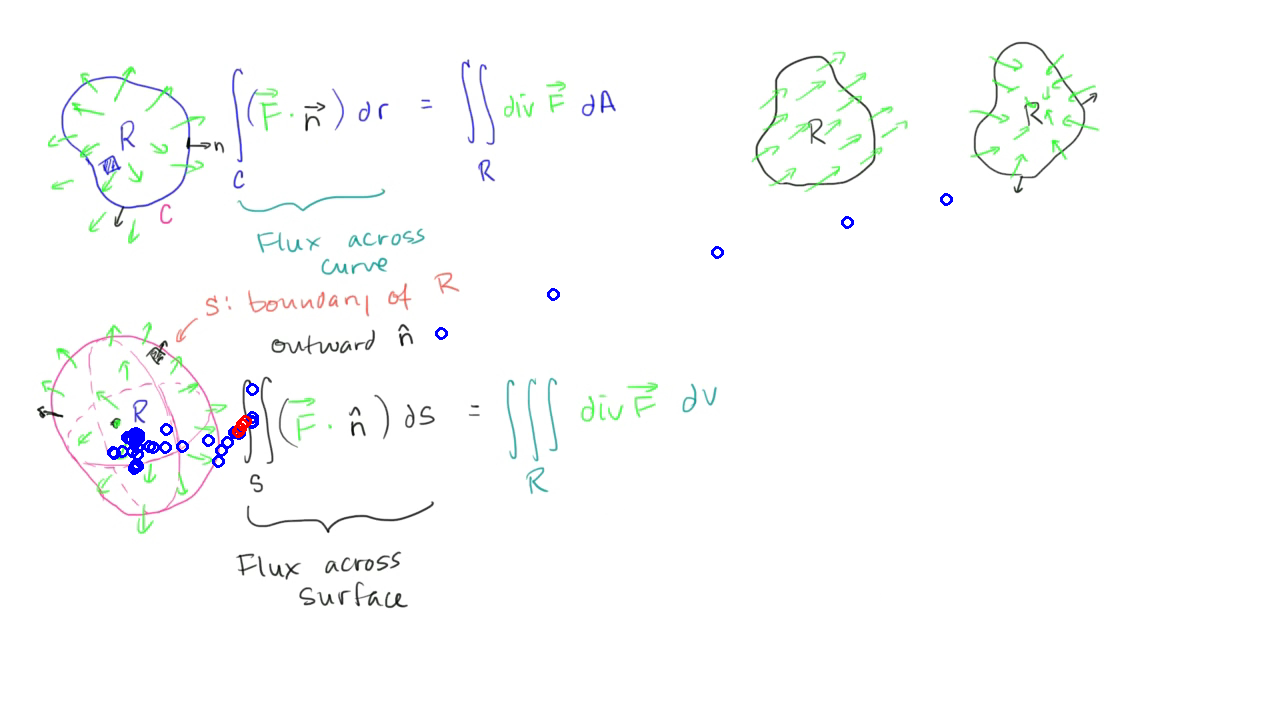 R
n
C
∫_C (F⃗ · n⃗) dr = ∬_R div F⃗ dA
R
R
Flux across
curve
S: boundary of R
outward n̂
R
∬_S (F⃗ · n̂) dS = ∭_R div F⃗ dV
Flux across
surface